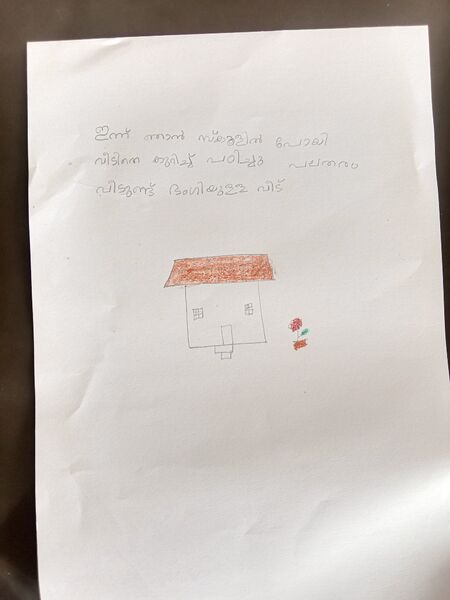 ഇന്ന് ഞാൻ സ്കൂളിൽ പോയി
വീടിനെ കുറിച്ച് പഠിച്ചു പലതരം
വീടുണ്ട് ഭംഗിയുള്ള വീട്